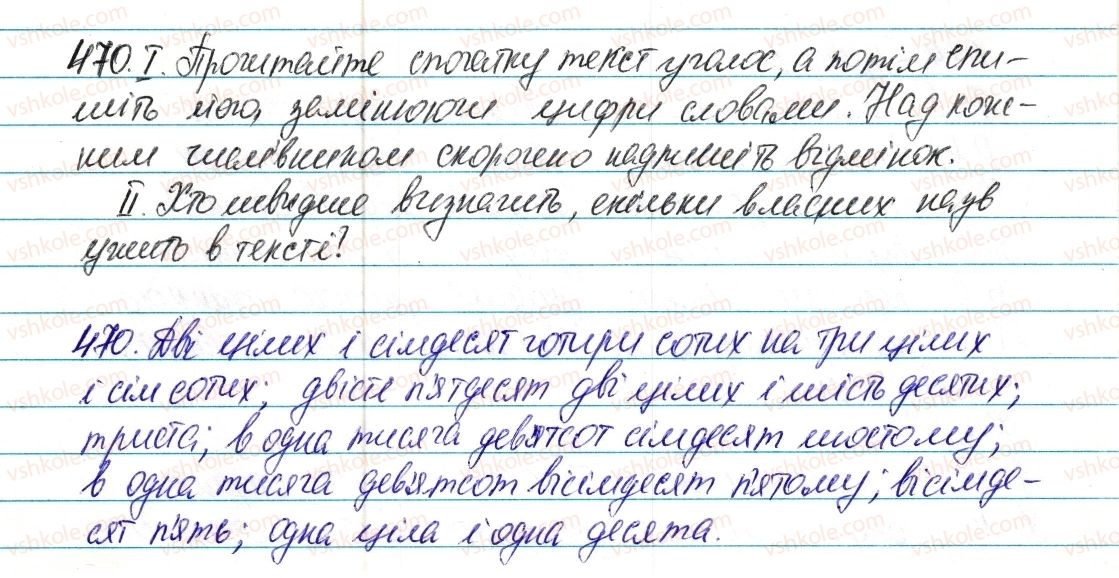 470. І. Прочитайте спочатку текст уголос, а потім спи-
шіть його, замінюючи цифри словами. Над кож-
ним числівником скорочено надпишіть відмінок.
ІІ. Хто швидше визначить, скільки власних назв
ужито в тексті?
470. Дві цілих і сімдесят чотири сотих на три цілих
і сім сотих; двісті п'ятдесят дві цілих і шість десятих;
триста; в одна тисяча девятсот сімдесят шостому;
в одна тисяча дев'ятсот вісімдесят п'ятому; вісімде-
сят п'ять; одна ціла і одна десята.